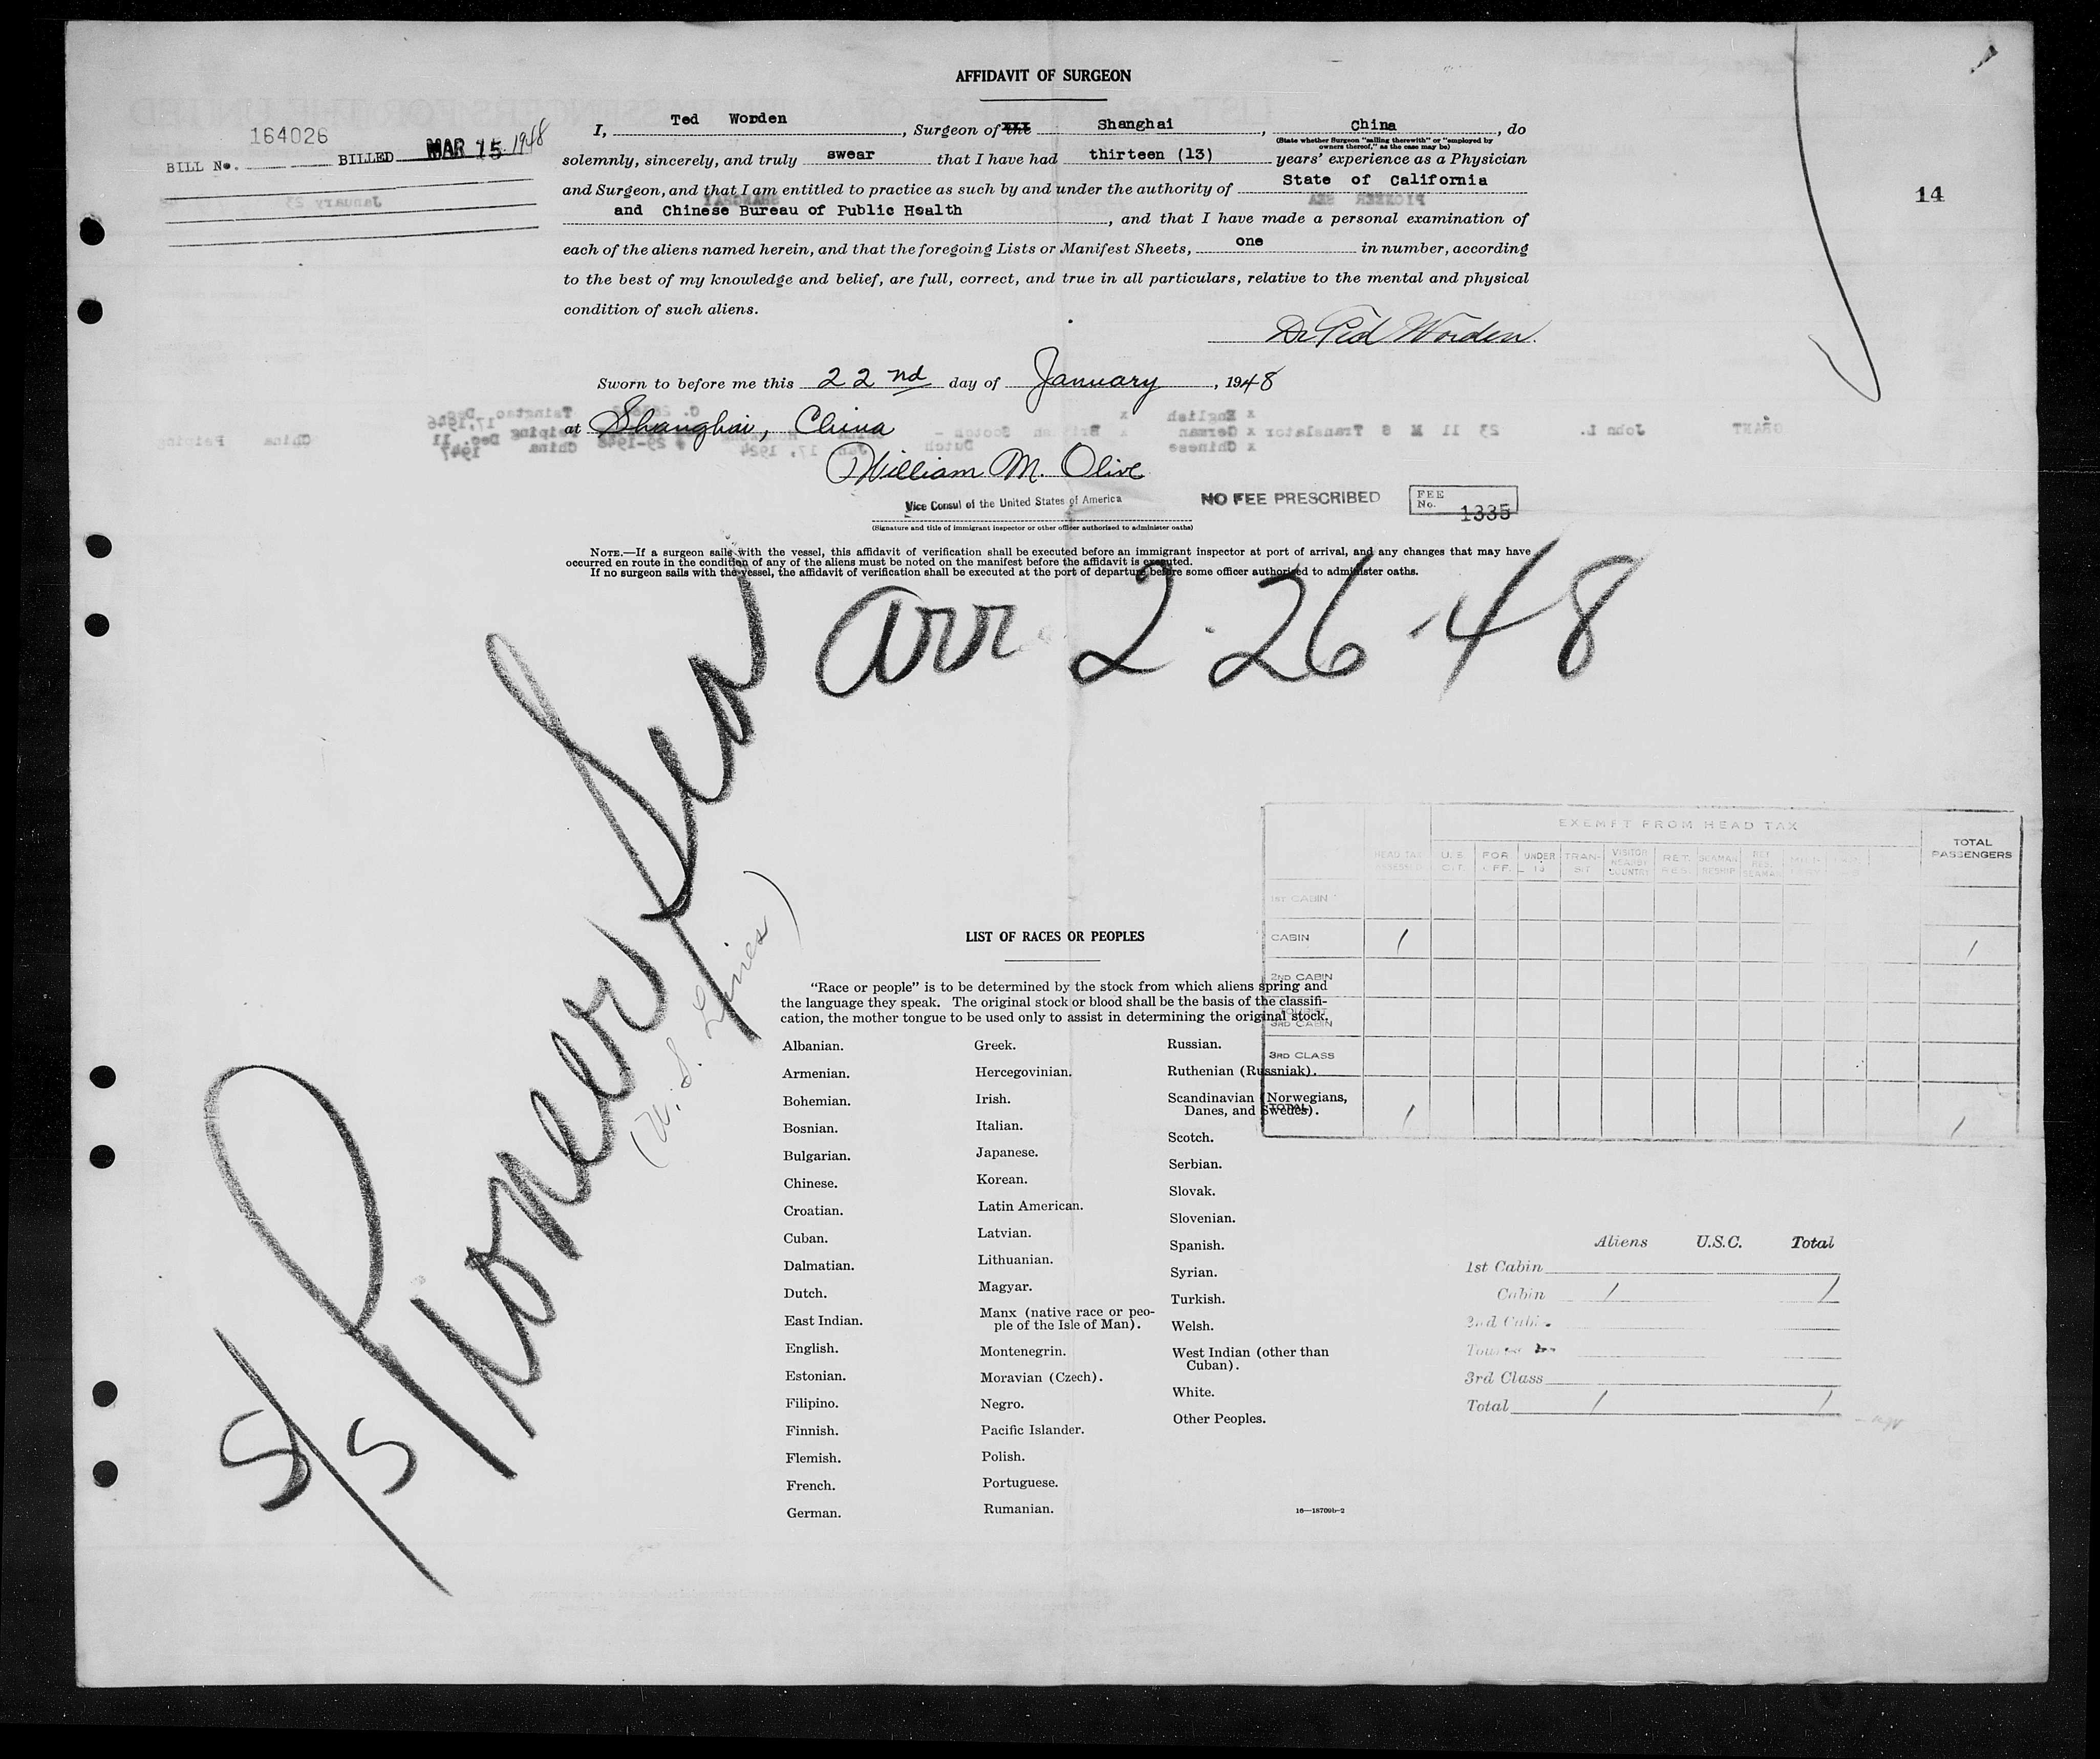 AFFIDAVIT OF SURGEON
164026
BILL No. BILLED MAR 15 1948
14
I, Ted Worden, Surgeon of the Shanghai, China, do
(State whether Surgeon "sailing therewith" or "employed by
owners thereof," as the case may be)
solemnly, sincerely, and truly swear that I have had thirteen (13) years' experience as a Physician
and Surgeon, and that I am entitled to practice as such by and under the authority of State of California
and Chinese Bureau of Public Health, and that I have made a personal examination of
each of the aliens named herein, and that the foregoing Lists or Manifest Sheets, one in number, according
to the best of my knowledge and belief, are full, correct, and true in all particulars, relative to the mental and physical
condition of such aliens.
Dr Ted Worden.
Sworn to before me this 22nd day of January, 1948
at Shanghai, China
William M. Olive
Vice Consul of the United States of America
NO FEE PRESCRIBED
FEE
No. 1335
(Signature and title of immigrant inspector or other officer authorized to administer oaths)
NOTE.—If a surgeon sails with the vessel, this affidavit of verification shall be executed before an immigrant inspector at port of arrival, and any changes that may have
occurred en route in the condition of any of the aliens must be noted on the manifest before the affidavit is executed.
If no surgeon sails with the vessel, the affidavit of verification shall be executed at the port of departure before some officer authorized to administer oaths.
arr 2-26-48
S/S Pioneer Sea
(U.S. Lines)
EXEMPT FROM HEAD TAX
HEAD TAX ASSESSED
U.S. CIT.
FOR OFF.
UNDER 16
TRANSIT
VISITOR NEARBY COUNTRY
RET. RES.
TOTAL PASSENGERS
1ST CABIN
CABIN 1 1
2ND CABIN
3RD CABIN
3RD CLASS
TOTAL 1 1
LIST OF RACES OR PEOPLES
"Race or people" is to be determined by the stock from which aliens spring and
the language they speak. The original stock or blood shall be the basis of the classifi-
cation, the mother tongue to be used only to assist in determining the original stock.
Albanian.
Armenian.
Bohemian.
Bosnian.
Bulgarian.
Chinese.
Croatian.
Cuban.
Dalmatian.
Dutch.
East Indian.
English.
Estonian.
Filipino.
Finnish.
Flemish.
French.
German.
Greek.
Hercegovinian.
Irish.
Italian.
Japanese.
Korean.
Latin American.
Latvian.
Lithuanian.
Magyar.
Manx (native race or peo-
ple of the Isle of Man).
Montenegrin.
Moravian (Czech).
Negro.
Pacific Islander.
Polish.
Portuguese.
Rumanian.
Russian.
Ruthenian (Russniak).
Scandinavian (Norwegians,
Danes, and Swedes).
Scotch.
Serbian.
Slovak.
Slovenian.
Spanish.
Syrian.
Turkish.
Welsh.
West Indian (other than
Cuban).
White.
Other Peoples.
16—18709b-2
Aliens U.S.C. Total
1st Cabin
Cabin 1 1
2nd Cabin
3rd Class
Total 1 1